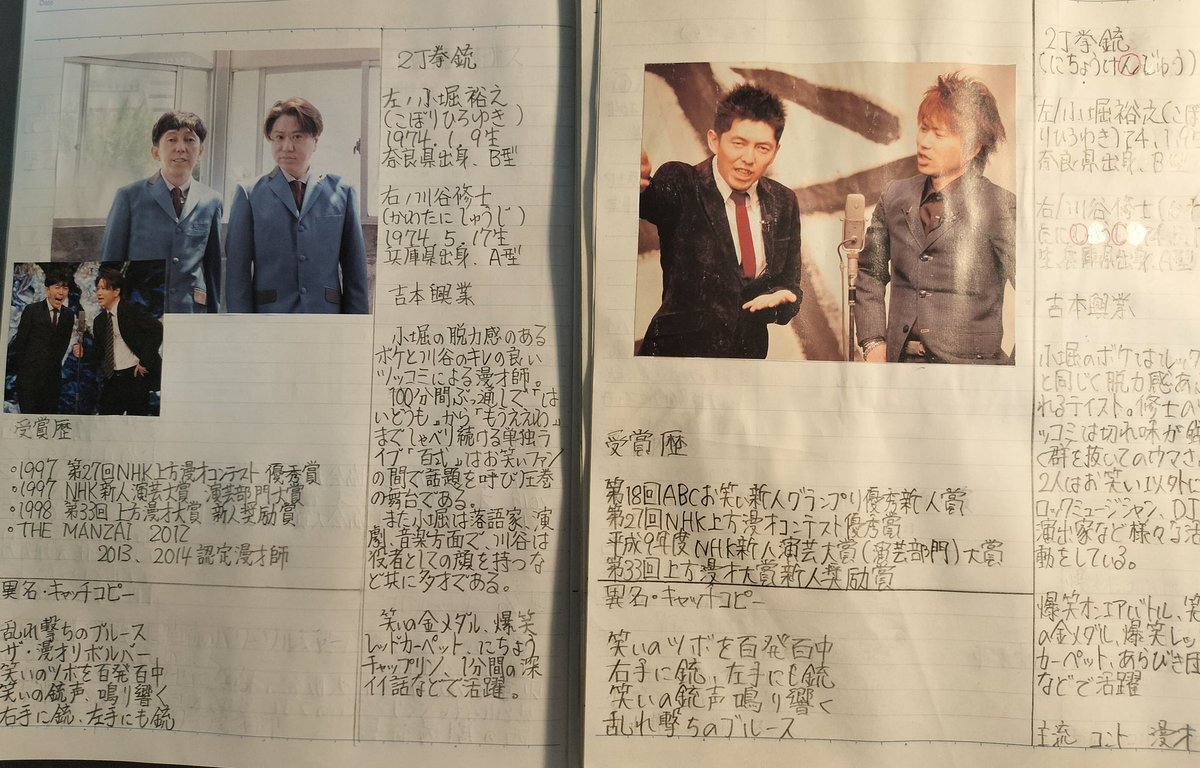 2丁拳銃
左/小堀裕之
(こぼりひろゆき)
1974.1.9生
奈良県出身、B型
右/川谷修士
(かわたにしゅうじ)
1974.5.17生
兵庫県出身、A型
吉本興業
小堀の脱力感のある
ボケと川谷のキレの良い
ツッコミによる漫才師。
100分間ぶっ通しで「は
いどうも」から「もうええわ」
までしゃべり続ける単独ラ
イブ「百式」はお笑いファン
の間で話題を呼び圧巻
の舞台である。
また小堀は落語家、演
劇、音楽方面で、川谷は
役者としての顔を持つな
ど共に多才である。
笑いの金メダル、爆笑
レッドカーペット、にちょう
チャップリン、1分間の深
イイ話などで活躍。
受賞歴
・1997 第27回NHK上方漫才コンテスト 優秀賞
・1997 NHK新人演芸大賞 演芸部門大賞
・1998 第33回上方漫才大賞 新人奨励賞
・THE MANZAI 2012
2013、2014認定漫才師
異名・キャッチコピー
乱れ撃ちのブルース
ザ・漫才リボルバー
笑いのツボを百発百中
笑いの銃声、鳴り響く
右手に銃、左手にも銃
2丁拳銃
(にちょうけんじゅう)
左/小堀裕之(こ
ひろゆき)74、1
奈良県出身、B
右/川谷修士(
兵庫県出身、A型
吉本興業
小堀のボケはレッ
と同じく脱力感あ
れるテイスト。修士の
ッコミは切れ味が鋭
く群を抜いてのウマさ
2人はお笑い以外に
ロックミュージシャン、DJ
演出家など様々な活
動をしている。
爆笑オンエアバトル、笑
の金メダル、爆笑レッ
カーペット、あらびき団
などで活躍
主流 コント 漫才
受賞歴
第18回ABCお笑い新人グランプリ優秀新人賞
第27回NHK上方漫才コンテスト優秀賞
平成9年度NHK新人演芸大賞(演芸部門)大賞
第33回上方漫才大賞新人奨励賞
異名・キャッチコピー
笑いのツボを百発百中
右手に銃、左手にも銃
笑いの銃声鳴り響く
乱れ撃ちのブルース